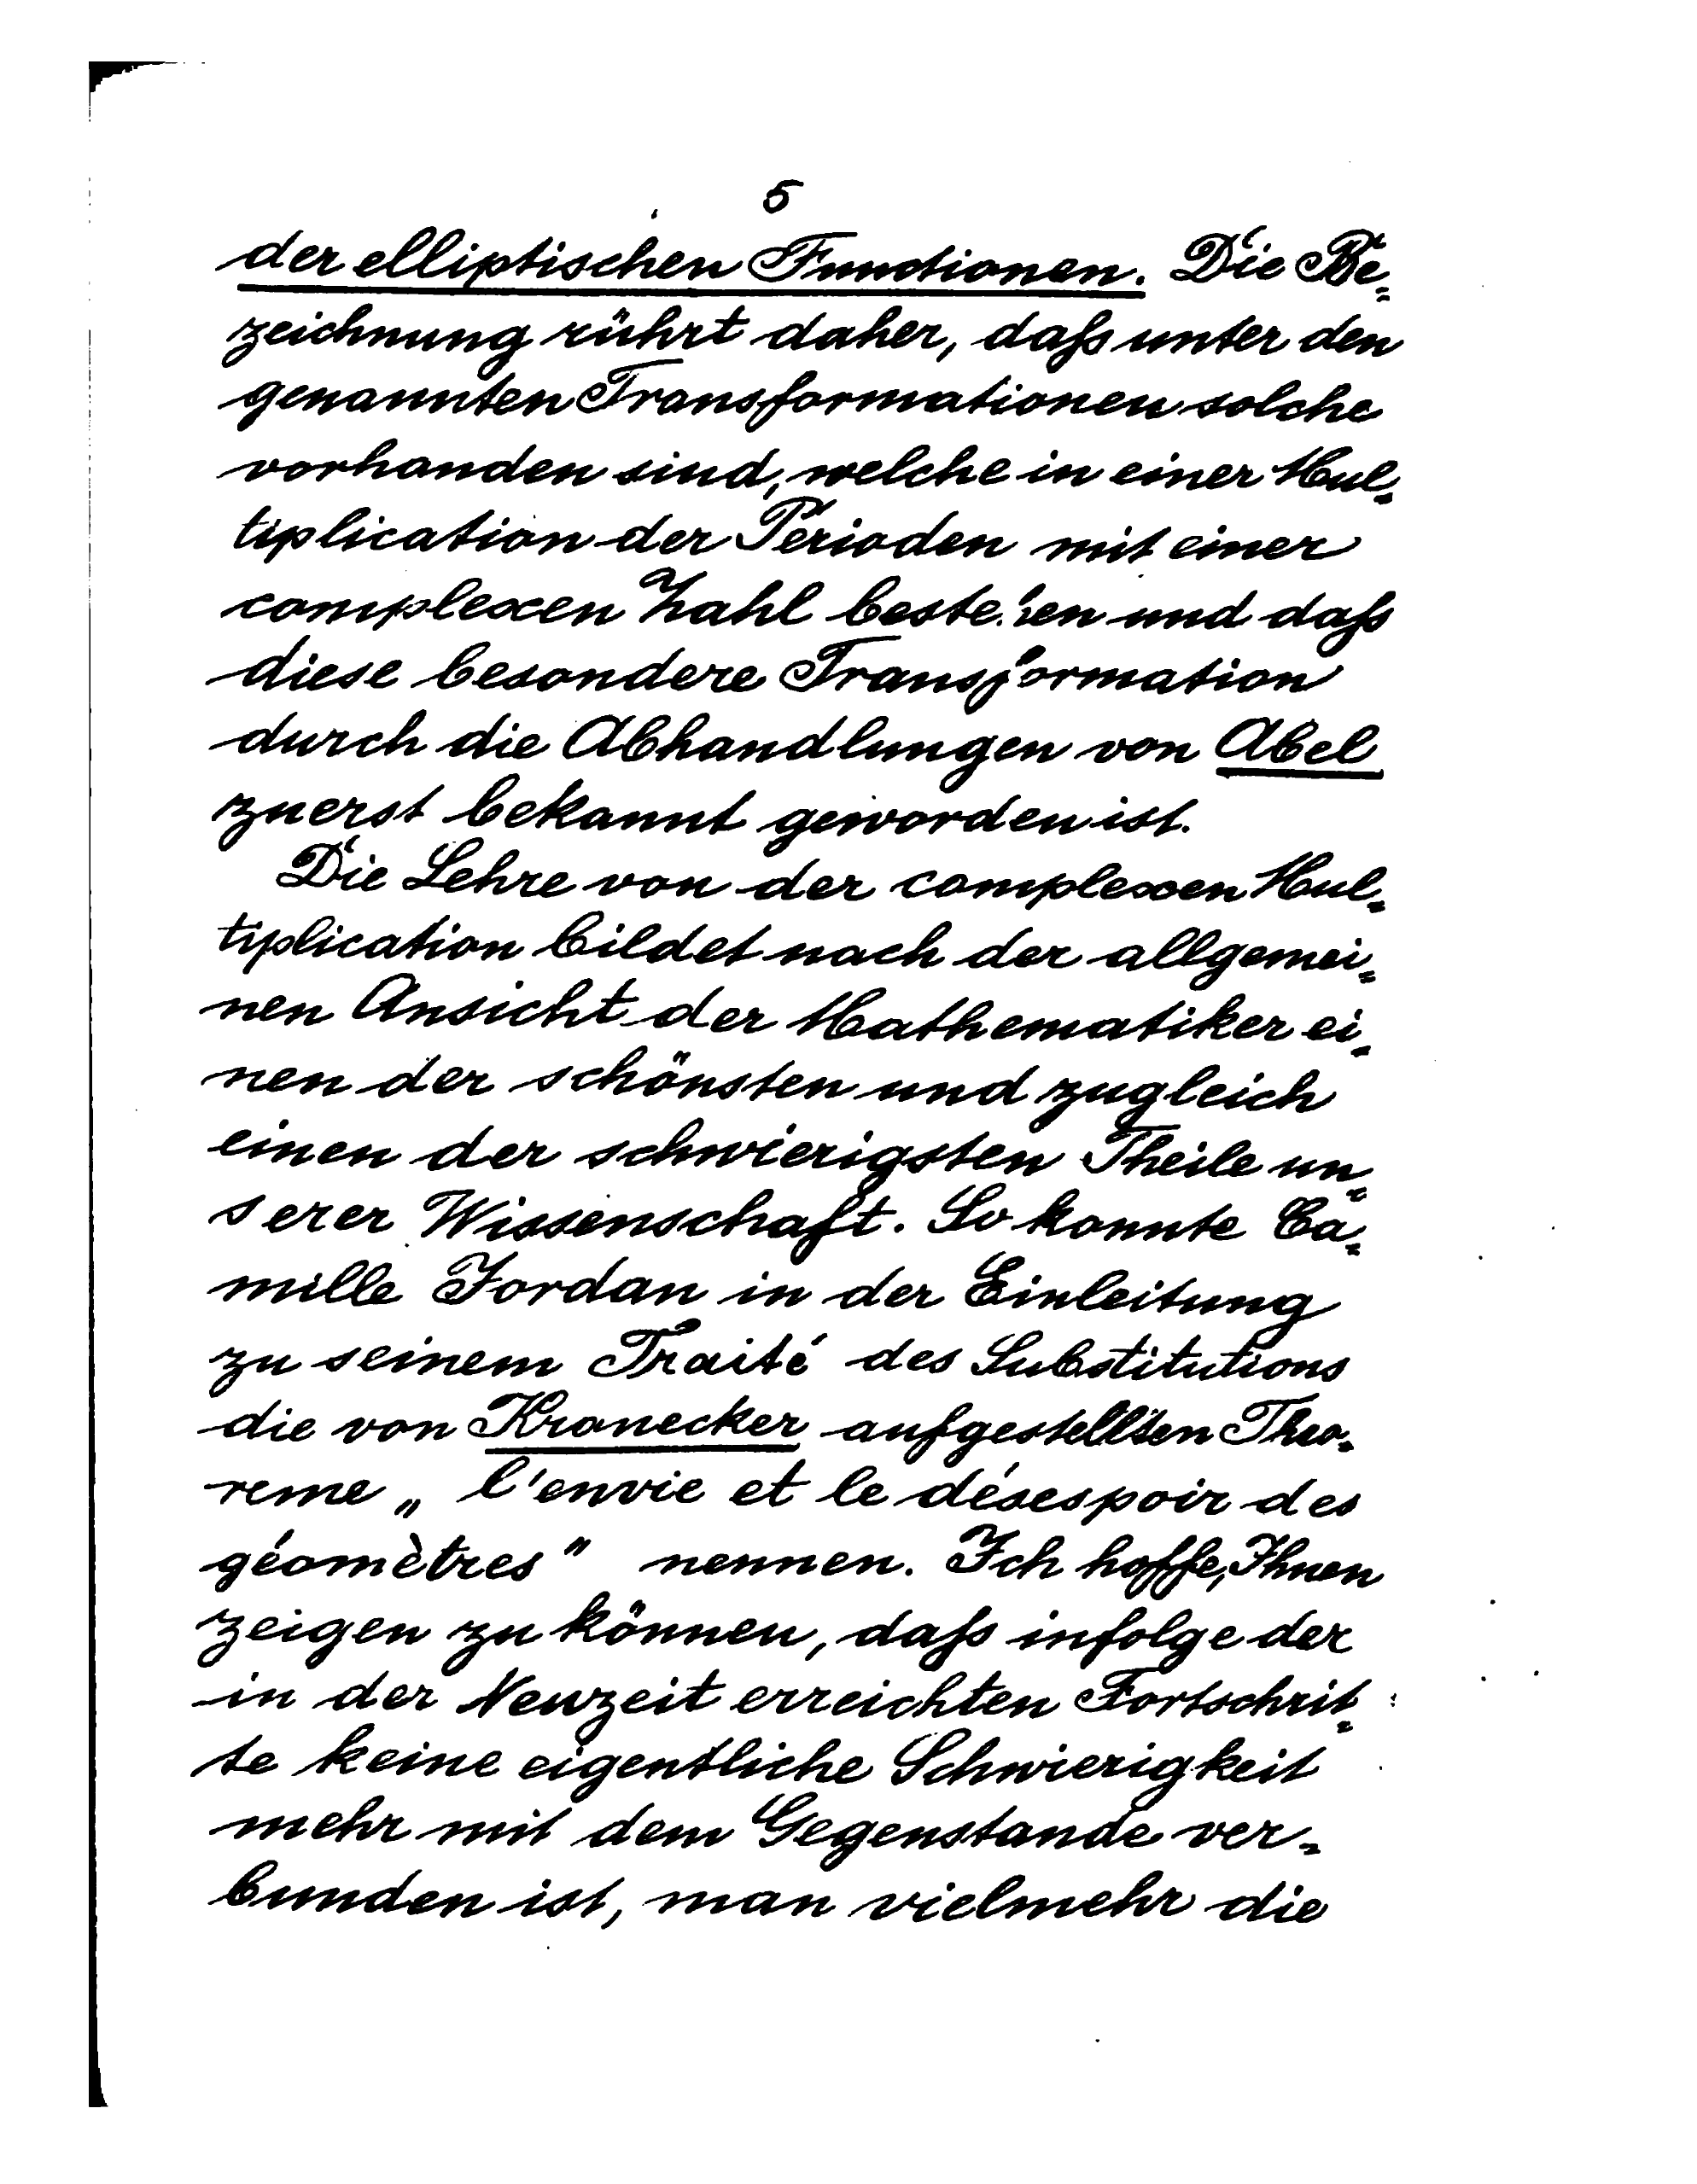 5
der elliptischen Functionen. Die Be=
zeichnung rührt daher, daß unter den
genannten Transformationen solche
vorhanden sind, welche in einer Mul=
tiplication der Perioden mit einer
complexen Zahl bestehen und daß
diese besondere Transformation
durch die Abhandlungen von Abel
zuerst bekannt geworden ist.
Die Lehre von der complexen Mul=
tiplication bildet nach der allgemei=
nen Ansicht der Mathematiker ei=
nen der schönsten und zugleich
einen der schwierigsten Theile un=
serer Wissenschaft. So konnte Ca=
mille Jordan in der Einleitung
zu seinem Traité des Substitutions
die von Kronecker aufgestellten Theo=
reme „l'envie et le désespoir des
géomètres" nennen. Ich hoffe, Ihnen
zeigen zu können, daß infolge der
in der Neuzeit erreichten Fortschrit=
te keine eigentliche Schwierigkeit
mehr mit dem Gegenstande ver=
bunden ist, man vielmehr die